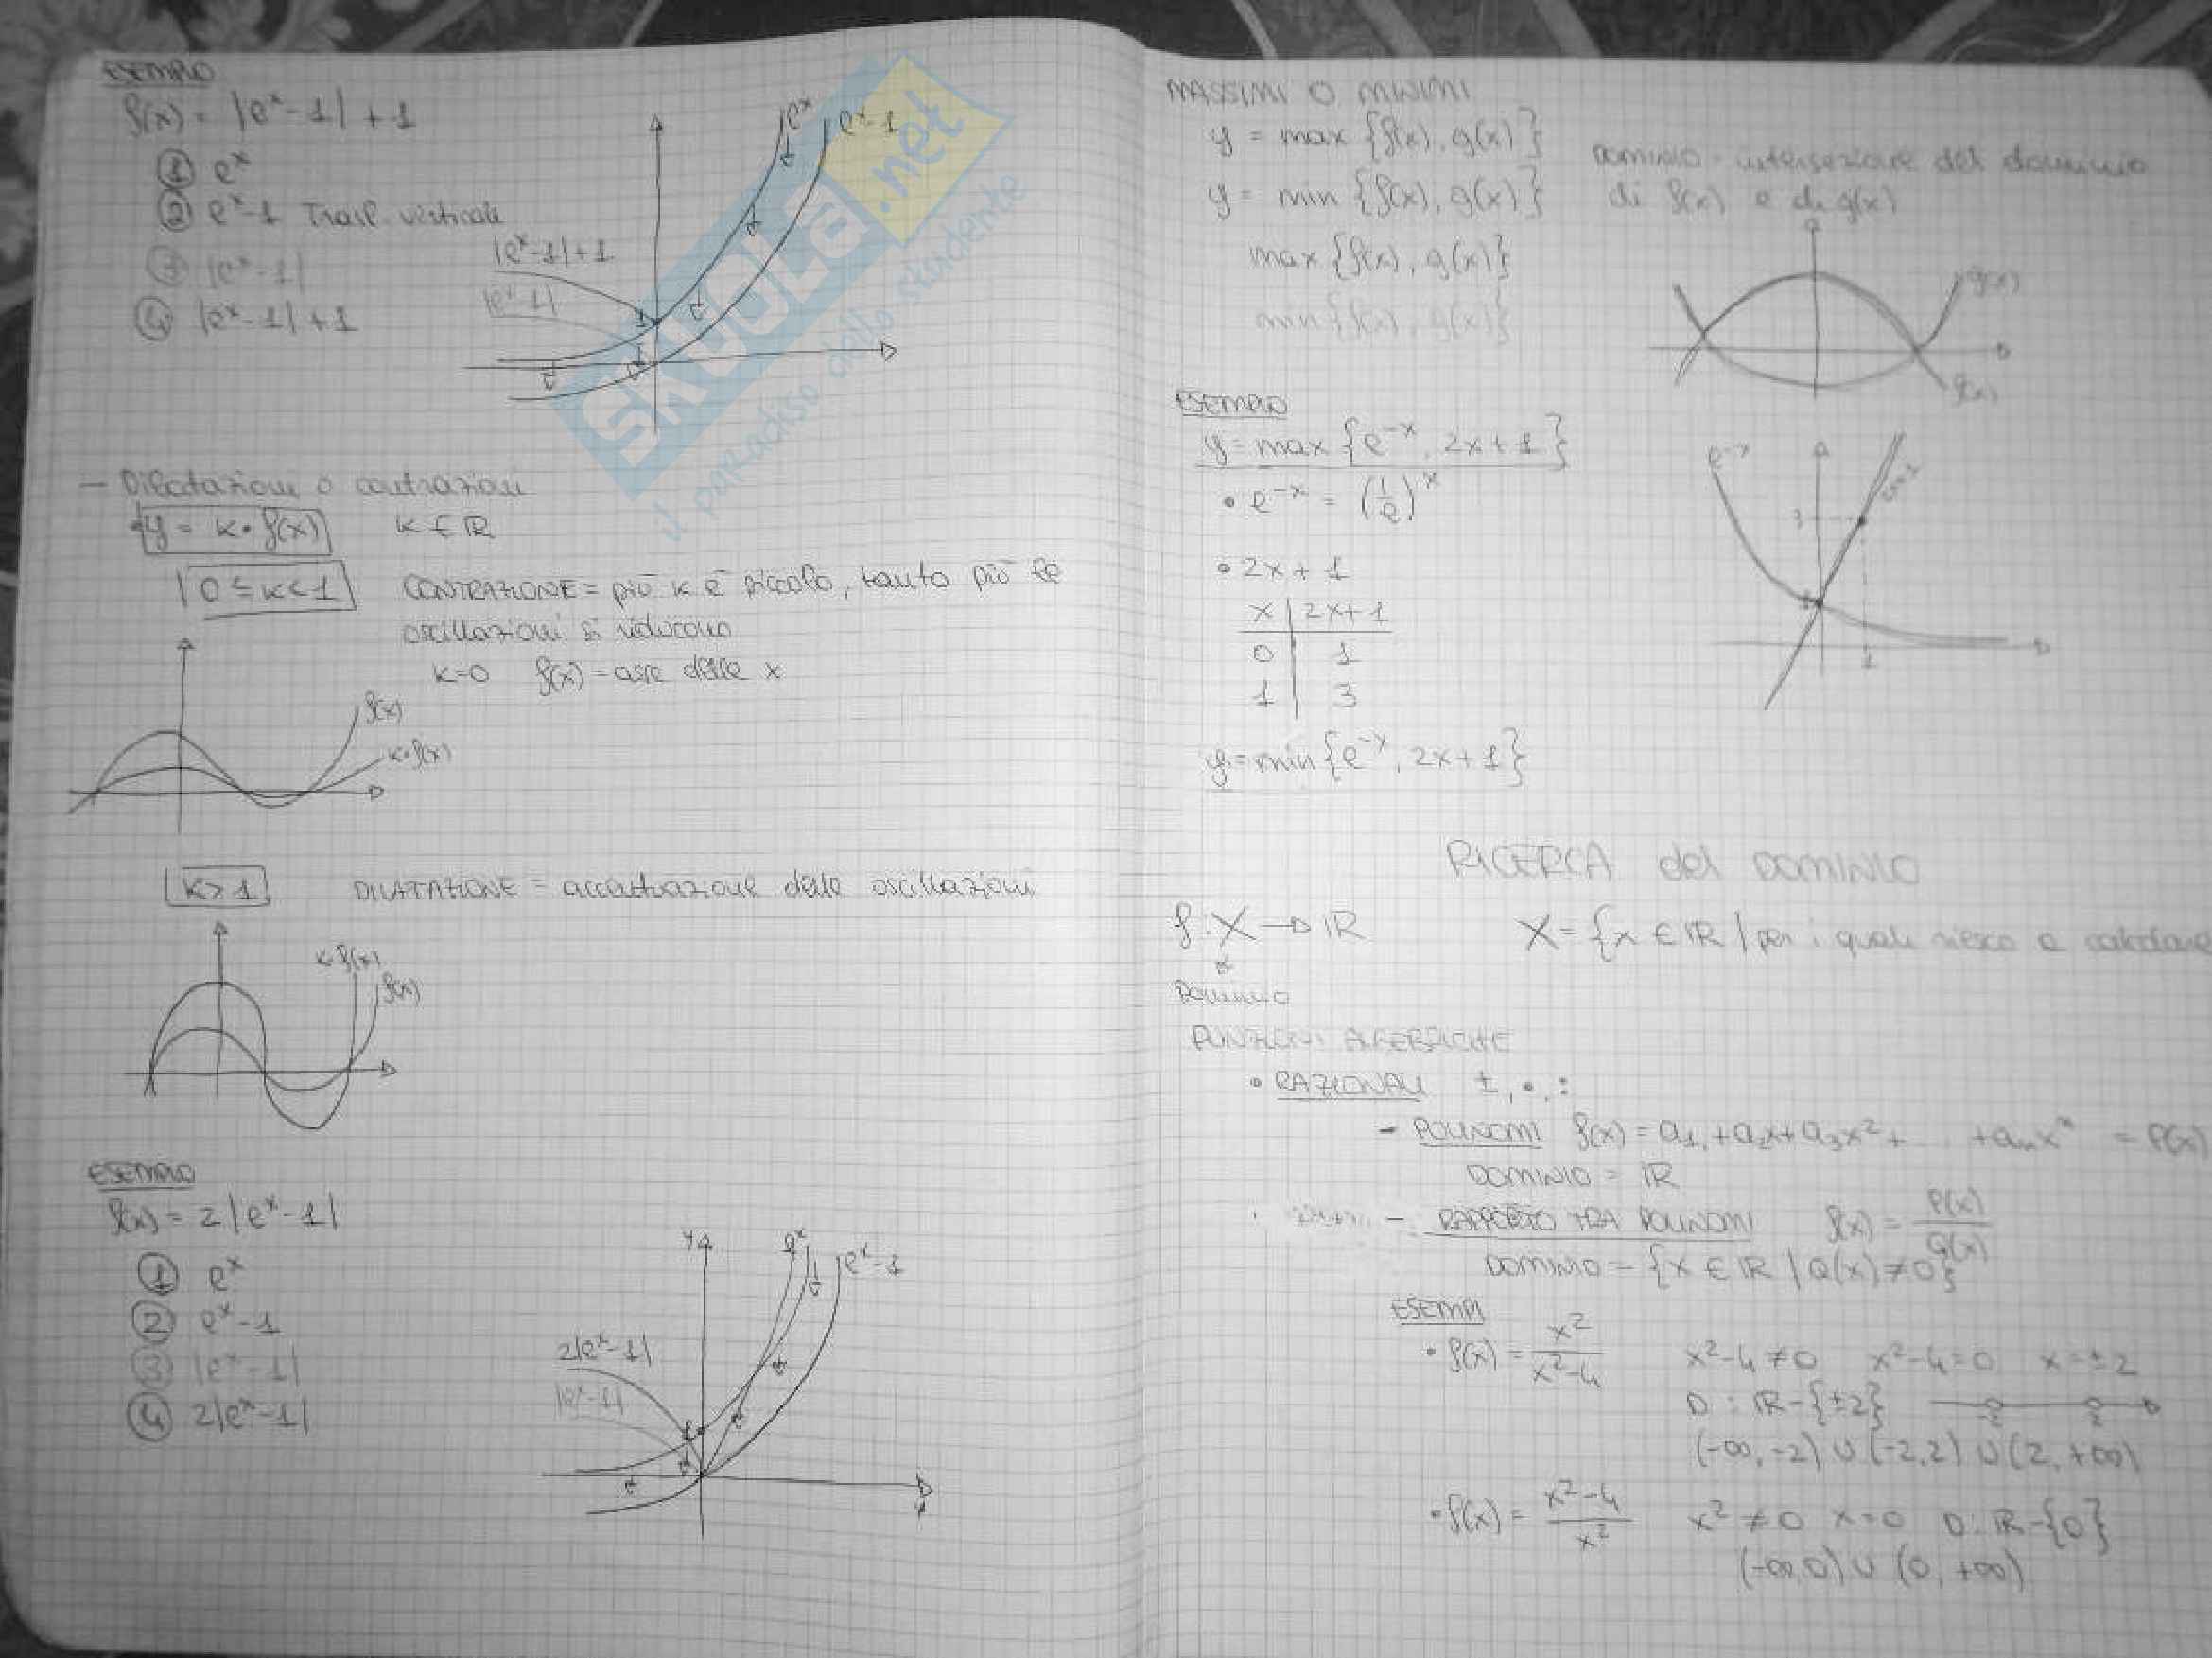 ESEMPIO
f(x) = |e^x - 1| + 1
① e^x
② e^x - 1 Trasl. verticale
③ |e^x - 1|
④ |e^x - 1| + 1
e^x
e^x - 1
|e^x - 1| + 1
|e^x - 1|
1
- Dilatazioni o contrazioni
y = k · f(x) k ∈ ℝ
0 ≤ k < 1 CONTRAZIONE = più k è piccolo, tanto più le
oscillazioni si riducono
k=0 f(x) = asse delle x
f(x)
k·f(x)
k > 1 DILATAZIONE = accentuazione delle oscillazioni
k·f(x)
f(x)
ESEMPIO
f(x) = 2|e^x - 1|
① e^x
② e^x - 1
③ |e^x - 1|
④ 2|e^x - 1|
y
e^x
e^x - 1
2|e^x - 1|
|e^x - 1|
1
MASSIMI O MINIMI
y = max {f(x), g(x)}
y = min {f(x), g(x)}
Dominio = intersezione del dominio
di f(x) e di g(x)
max {f(x), g(x)}
min {f(x), g(x)}
g(x)
f(x)
ESEMPIO
y = max {e^-x, 2x + 1}
• e^-x = (1/e)^x
• 2x + 1
x | 2x + 1
0 | 1
1 | 3
y = min {e^-x, 2x + 1}
e^-x
2x+1
3
1
RICERCA del DOMINIO
f: X → ℝ X = {x ∈ ℝ | per i quali riesco a calcolare
Dominio
FUNZIONI ALGEBRICHE
• RAZIONALI ±, •, :
- POLINOMI f(x) = a₁ + a₂x + a₃x² + . + aₙxⁿ = P(x)
DOMINIO = ℝ
- RAPPORTO TRA POLINOMI f(x) = P(x)/Q(x)
DOMINIO = {x ∈ ℝ | Q(x) ≠ 0}
ESEMPI
• f(x) = x²/x²-4 x²-4 ≠ 0 x²-4 = 0 x = ±2
D : ℝ - {±2} -2 2
(-∞, -2) ∪ (-2, 2) ∪ (2, +∞)
• f(x) = x²-4/x² x² ≠ 0 x = 0 D: ℝ - {0}
(-∞, 0) ∪ (0, +∞)
SKUOLA.net
il paradiso dello studente